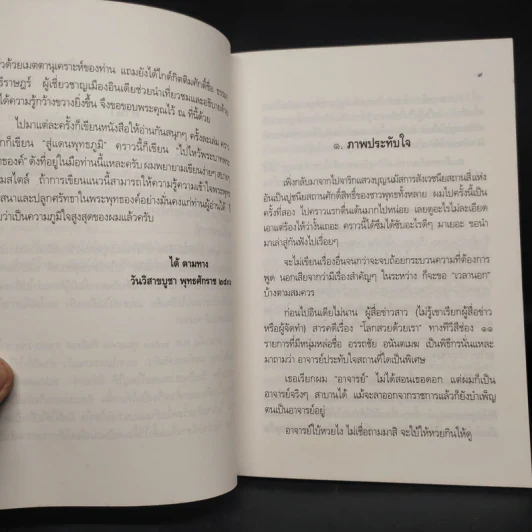 ด้วยเมตตานุเคราะห์ของท่าน แถมยังได้ไกด์กิตติมศักดิ์ชื่อ
ผู้เชี่ยวชาญเมืองอินเดียช่วยนำเที่ยวชมและอธิบาย
ได้ความรู้กว้างขวางยิ่งขึ้น จึงขอขอบพระคุณไว้ ณ ที่นี้ด้วย
ไปมาแต่ละครั้งก็เขียนหนังสือให้อ่านกันสนุกๆ ครั้งละเล่ม
ก็เขียน "สู่แดนพุทธภูมิ" คราวนี้ก็เขียน "ไปไหว้พระบาท
ดังที่อยู่ในมือท่านนี้แหละครับ ผมพยายามเขียนง่ายๆ
สไตล์ ถ้าการเขียนแนวนี้สามารถให้ความรู้ความเข้าใจ
และปลูกศรัทธาในพระพุทธองค์อย่างมั่นคงแก่ท่านผู้อ่านได้
ว่าเป็นความภูมิใจสูงสุดของผมแล้วครับ
ได้ ตามทาง
วันวิสาขบูชา พุทธศักราช
๑. ภาพประทับใจ
เพิ่งกลับมาจากไปจาริกแสวงบุญนมัสการสังเวชนียสถานสี่แห่ง
อันเป็นปูชนียสถานศักดิ์สิทธิ์ของชาวพุทธทั้งหลาย ผมไปครั้งนี้เป็น
ครั้งที่สอง ไปคราวแรกตื่นเต้นมากไปหน่อย เลยดูอะไรไม่ละเอียด
เอาแต่ร้องไห้ว่างั้นเถอะ คราวนี้ได้ซึมได้ซับอะไรดีๆ มาเยอะ ขอนำ
มาเล่าสู่กันฟังไปเรื่อยๆ
จะไม่เขียนเรื่องอื่นจนกว่าจะจบถ้อยกระบวนความที่ต้องการ
พูด นอกเสียจากว่ามีเรื่องสำคัญๆ ในระหว่าง ก็จะขอ "เวลานอก"
บ้างตามสมควร
ก่อนไปอินเดียไม่นาน ผู้สื่อข่าวสาว (ไม่รู้เขาเรียกผู้สื่อข่าว
หรือผู้จัดทำ) สารคดีเรื่อง "โลกสวยด้วยเรา" ทางทีวีสีช่อง ๑๑
รายการที่มีหนุ่มหล่อชื่อ อรรถชัย อนันตเมฆ เป็นพิธีกรนั่นแหละ
มาถามว่า อาจารย์ประทับใจสถานที่ใดเป็นพิเศษ
เธอเรียกผม "อาจารย์" ไม่ได้สอนเธอดอก แต่ผมก็เป็น
อาจารย์จริงๆ สาบานได้ แม้จะลาออกจากราชการแล้วก็ยังบำเพ็ญ
ตนเป็นอาจารย์อยู่
อาจารย์ใบ้หวยไง ไม่เชื่อถามมาสิ จะใบ้ให้หวยกินให้ดู